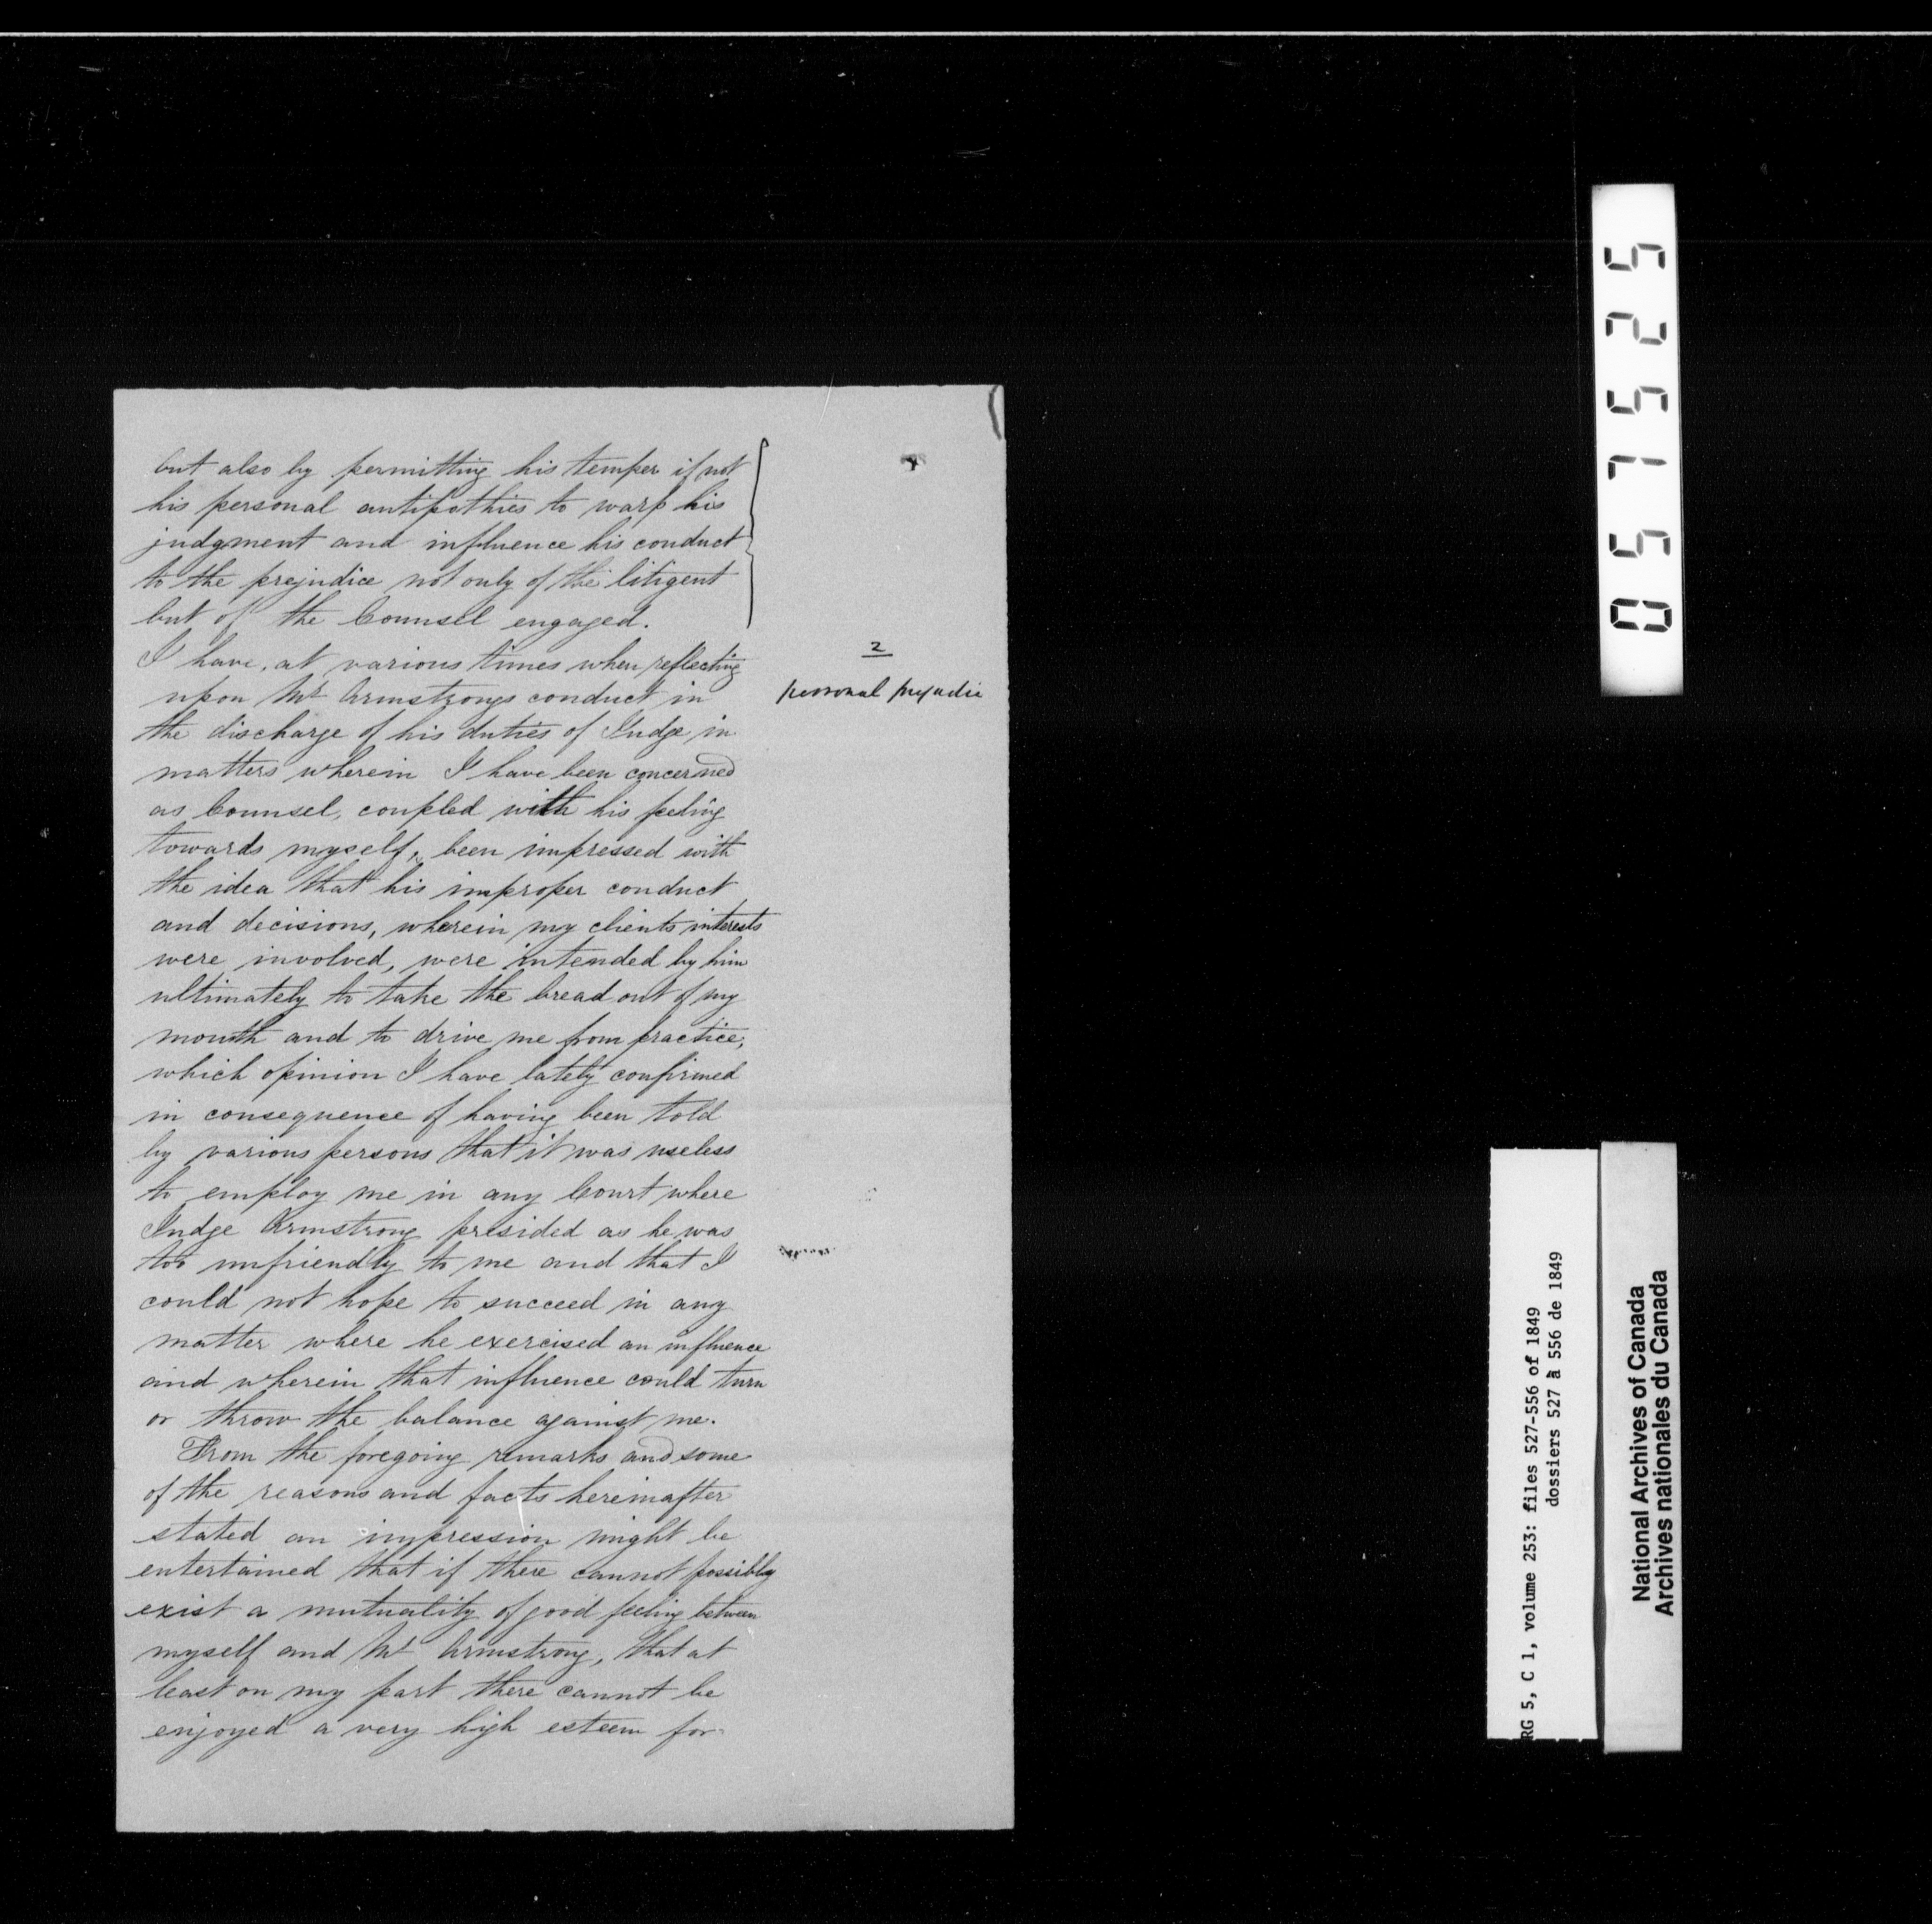 but also by permitting his temper if not
his personal antipathies to warp his
judgment and influence his conduct
to the prejudice not only of the litigent
but of the Counsel engaged.
I have, at various times when reflecting
upon Mr Armstrongs conduct in
the discharge of his duties of Judge in
matters wherein I have been concerned
as Counsel, coupled with his feeling
towards myself, been impressed with
the idea that his improper conduct
and decisions, wherein my clients interests
were involved, were intended by him
ultimately to take the bread out of my
mouth and to drive me from practice,
which opinion I have lately confirmed
in consequence of having been told
by various persons that it was useless
to employ me in any Court where
Judge Armstrong presided as he was
too unfriendly to me and that I
could not hope to succeed in any
matter where he exercised an influence
and wherein that influence could turn
or throw the balance against me.
From the foregoing remarks and some
of the reasons and facts hereinafter
stated an impression might be
entertained that if there cannot possibly
exist a mutuality of good feeling between
myself and Mr Armstrong, that at
least on my part there cannot be
enjoyed a very high esteem for
2
personal prejudic
057525
RG 5, C 1, volume 253: files 527-556 of 1849
dossiers 527 à 556 de 1849
National Archives of Canada
Archives nationales du Canada